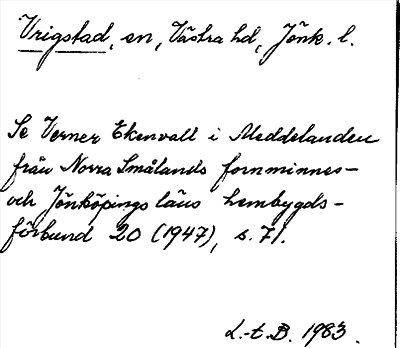 Vrigstad, sn, Västra hd, Jönk. l.
Se Verner Ekenvall i Meddelanden
från Norra Smålands fornminnes-
och Jönköpings läns hembygds-
förbund 20 (1947), s. 71.
L.-t. B. 1983.